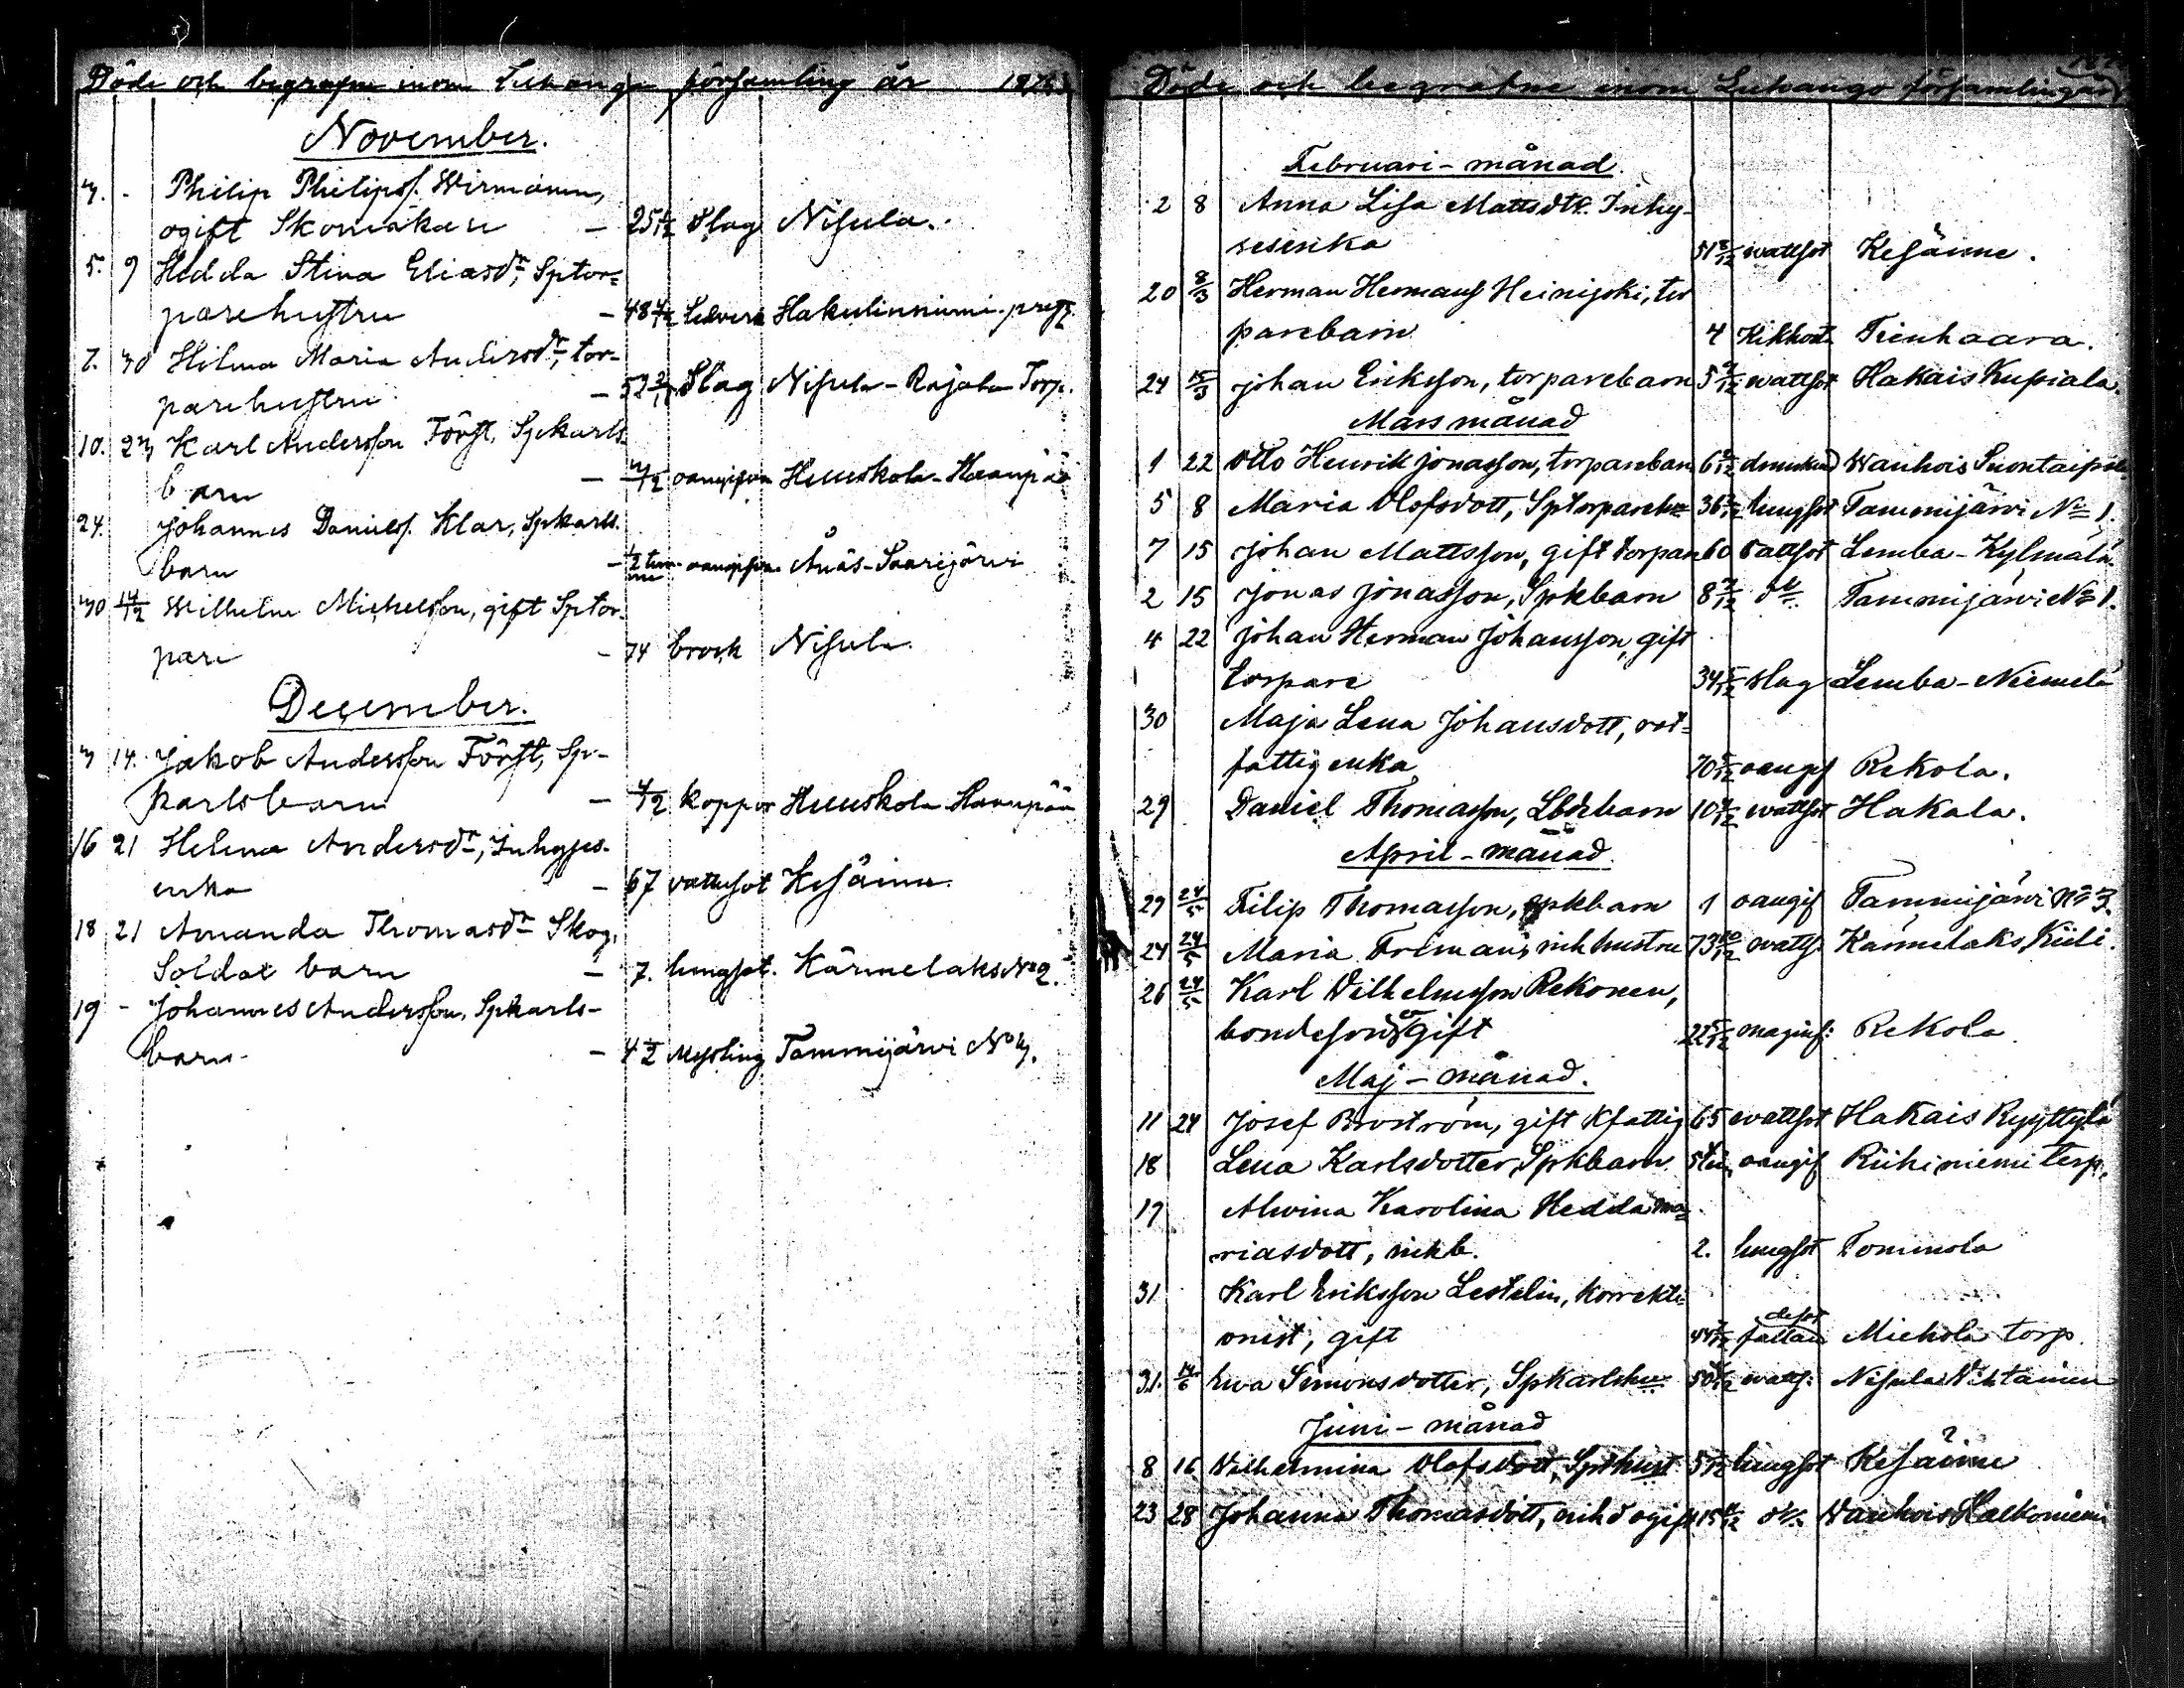 Döde och begrafne inom Luhanga församling år
November.
3. - Philip Philipss. Wirmanen,
ogift Skomakare - 25 1/12 Slag Nisula.
5. 9 Hedda Stina Eliasdr, Sptor=
parehustru - 48 4/12 Lefvers Hakulinniemi
7. 30 Hilma Maria Andersdr, tor-
parehustru - 52 2/12 Slag Nisula-Rajala Torp.
10. 23 Karl Andersson Först, Spkarls
barn - 3/12 oangifven Heuskola-Haanpää
24. Johannes Daniels. Klar, Spkarls.
barn - 1/2 timme oangifven Ånäs-Saarijärvi
30 14/12 Wilhelm Michelsson, gift Sptor-
pare - 74 brock Nisula
December.
3 14. Jakob Andersson Först, Sp-
karlsbarn - 4/12 koppor Heuskola Haanpää
16 21 Helena Andersdr, Inhyses-
enka - 67 vattusot Kesäinn.
18 21 Amanda Thomasdr Skog,
Soldat barn - 7. lungsot. Kärmelaks No 2.
19 - Johannes Andersson, Spkarls-
barn - 4 1/2 Messling Tammijärvi No 3.
Döde och begrafne inom Luhango församling år
Februari-månad.
2 8 Anna Lisa Mattsdtr. Inhy-
sesenka wattsot Kesäinne.
20 8/3 Herman Hermans Heinijoki, tor
parebarn 4 Kikhosta Tienhaara.
24 15/3 Johan Eriksson, torparebarn wattsot Hakais Kupiala.
Mars månad
1 22 Otto Henrik Jonasson, torparebarn drunknad Wanhois Suontaipale
5 8 Maria Olofsdott, Sptorparehu lungsot Tammijärvi No 1.
7 15 Johan Mattsson, gift torpare 60 vattsot Lemba-Kylmälä
2 15 Jonas Jonasson, Spkbarn do. Tammijärvi No 1.
4 22 Johan Herman Johansson, gift
torpare 34 5/12 slag Lemba-Niemelä
30 Maja Lena Johansdott, rot=
fattig enka 70 5/12 oangif Rekola.
29 Daniel Thomasson, barn wattsot Hakala.
April-månad
29 24/5 Filip Thomasson, spkbarn 1 oangif Tammijärvi No 3.
24 24/5 Maria Frimans, inh hustru 73 10/12 watts. Kärmelaks Kiili.
26 24/5 Karl Vilhelmsson Rekonen,
bondeson ogift 22 5/12 maginf: Rekola
Maj-månad.
11 24 Josef Broström, gift Kfattig 65 wattsot Hakais Ryyttylä
18 Lena Karlsdotter, Spkbarn oangif Riihiniemi torp.
17 Alvina Karolina Hedda Ma=
riasdott, inhb. 2. lungsot Tommola
31 Karl Eriksson Lestelin, korrekti=
onist, gift fallandesot Miekola torp.
31. 14/6 Ewa Simonsdotter, Spkarlshu watts. Nisula Vihtainen
Juni-månad
8 16 Wilhelmina Olofsdott, Spkhust lungsot Kesäinne
23 28 Johanna Thomasdott, inh d ogift do. Wanhois Halkoniemi